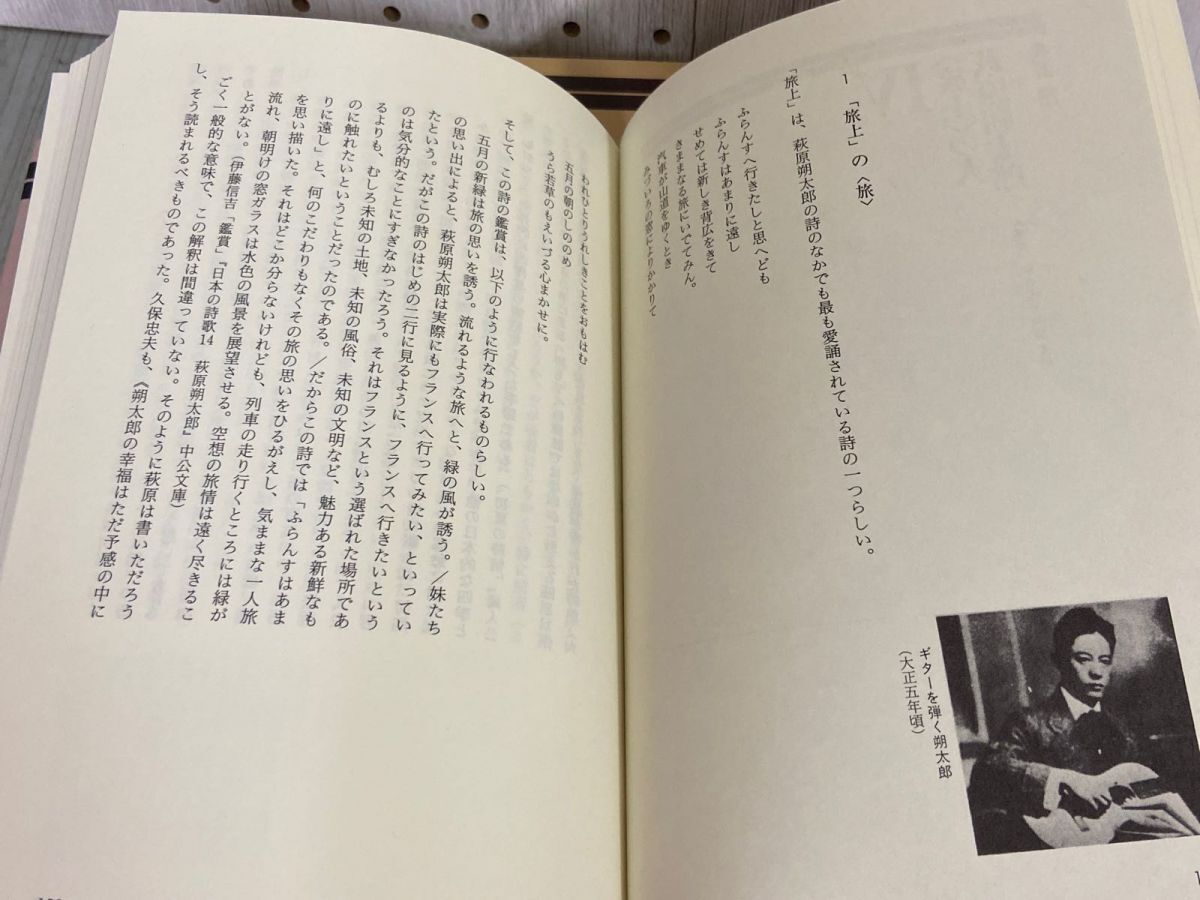 1　「旅上」の〈旅〉
「旅上」は、萩原朔太郎の詩のなかでも最も愛誦されている詩の一つらしい。
ふらんすへ行きたしと思へども
ふらんすはあまりに遠し
せめては新しき背広をきて
きままなる旅にいでてみん。
汽車が山道をゆくとき
みづいろの窓によりかかりて
ギターを弾く朔太郎
（大正五年頃）
われひとりうれしきことをおもはむ
五月の朝のしののめ
うら若草のもえいづる心まかせに。
そして、この詩の鑑賞は、以下のように行なわれるものらしい。
五月の新緑は旅の思いを誘う。流れるような旅へと、緑の風が誘う。／妹たち
の思い出によると、萩原朔太郎は実際にもフランスへ行ってみたい、といってい
たという。だがこの詩のはじめの二行に見るように、フランスへ行きたいという
のは気分的なことにすぎなかったろう。それはフランスという選ばれた場所であ
るよりも、むしろ未知の土地、未知の風俗、未知の文明など、魅力ある新鮮なも
のに触れたいということだったのである。／だからこの詩では「ふらんすはあま
りに遠し」と、何のこだわりもなくその旅の思いをひるがえし、気ままな一人旅
を思い描いた。それはどこか分らないけれども、列車の走り行くところには緑が
流れ、朝明けの窓ガラスは水色の風景を展望させる。空想の旅情は遠く尽きるこ
とがない。（伊藤信吉「鑑賞」『日本の詩歌14　萩原朔太郎』中公文庫）
ごく一般的な意味で、この解釈は間違っていない。そのように萩原は書いただろう
し、そう読まれるべきものであった。久保忠夫も、《朔太郎の幸福はただ予感の中に